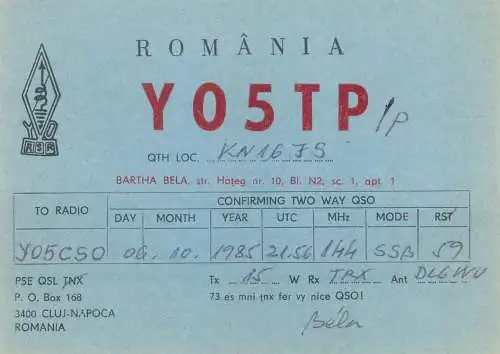 ROMÂNIA
YO5TP/p
YO
RSR
QTH LOC. KN16JS
BARTHA BELA, str. Hațeg nr. 10, Bl. N2, sc. 1, apt. 1
TO RADIO
CONFIRMING TWO WAY QSO
DAY MONTH YEAR UTC MHz MODE RST
YO5CSO 06. 10. 1985 21.56 144 SSB 59
PSE QSL TNX
Tx 15 W Rx TRX Ant DL6WU
P. O. Box 168
73 es mni tnx fer vy nice QSO!
3400 CLUJ-NAPOCA
ROMANIA
Béla